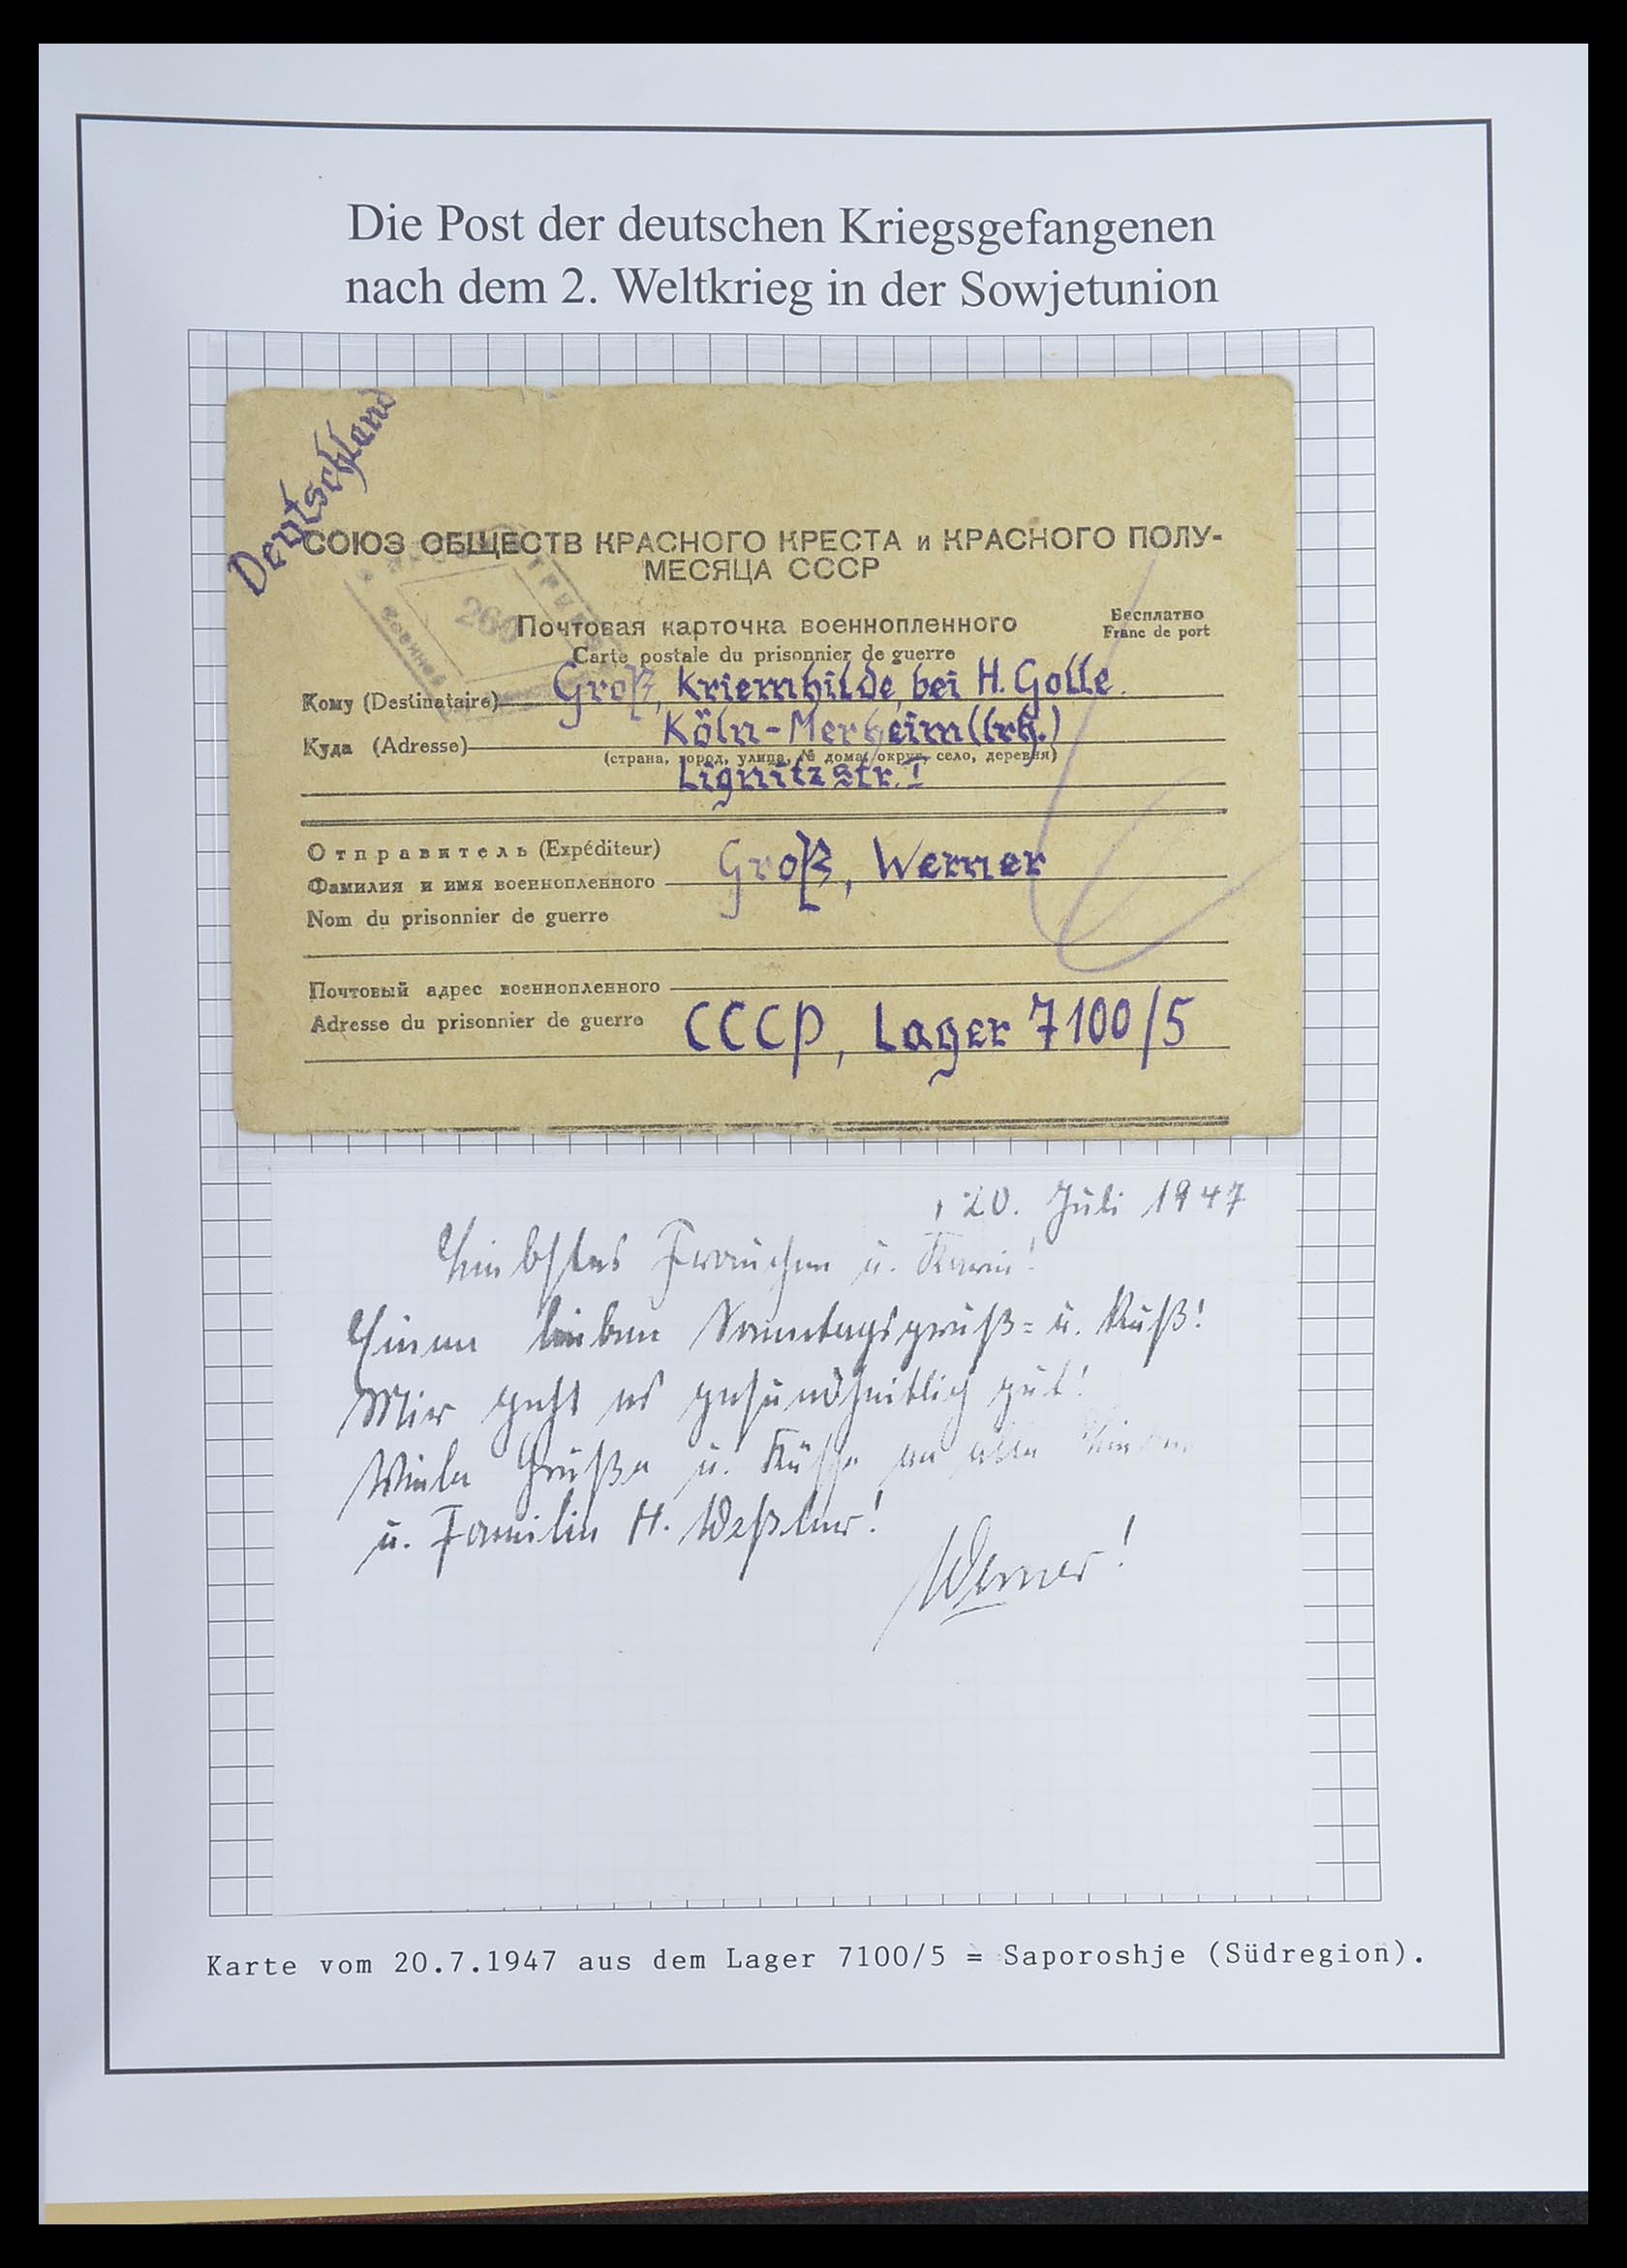 Die Post der deutschen Kriegsgefangenen
nach dem 2. Weltkrieg in der Sowjetunion
Deutschland
СОЮЗ ОБЩЕСТВ КРАСНОГО КРЕСТА и КРАСНОГО ПОЛУ-
МЕСЯЦА СССР
260
Почтовая карточка военнопленного
Бесплатно
Carte postale du prisonnier de guerre
Franc de port
Кому (Destinataire) Groß, Kriemhilde, bei H. Golle.
Куда (Adresse) Köln-Merheim (lrh.)
(страна, город, улица, № дома, округ, село, деревня)
Lignitzstr. I
Отправитель (Expéditeur)
Фамилия и имя военнопленного Groß, Werner
Nom du prisonnier de guerre
Почтовый адрес военнопленного
Adresse du prisonnier de guerre СССР, Lager 7100/5
20. Juli 1947
Liebstes Frauchen u. Karin!
Einen lieben Sonntagsgruß= u. Kuß!
Mir geht es gesundheitlich gut!
Viele Grüße u. Küsse an alle
u. Familie H.
Werner!
Karte vom 20.7.1947 aus dem Lager 7100/5 = Saporoshje (Südregion).